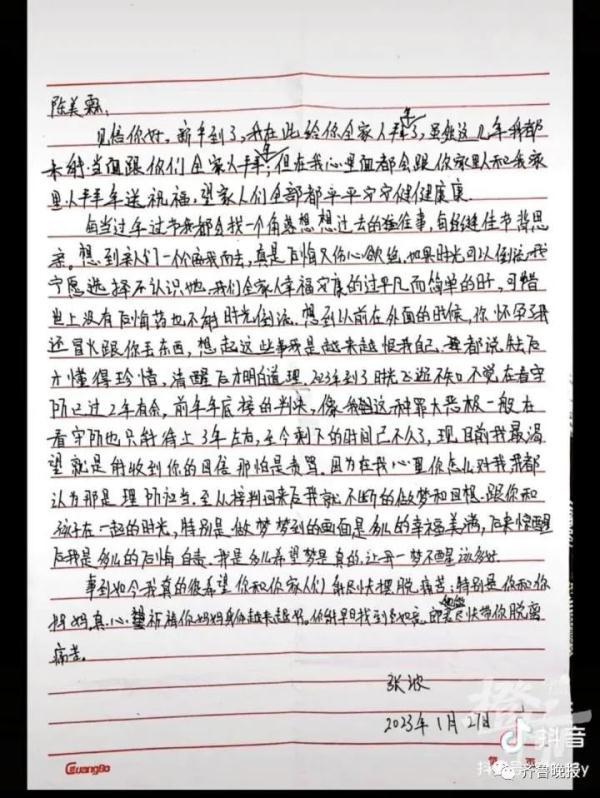 陈美霖:
见信你好。新年到了,我在此给你全家人拜年了,虽然这几年我都
未能当面跟你们全家人拜年,但在我心里面都会跟你家里人和我家
里人拜年送祝福,望家人们全部都平平安安健健康康。
每当过年过节我都会找一个角落想想过去的往事,每逢佳节倍思
亲。想到亲人们一个个离我而去,真是后悔又伤心欲绝,如果时光可以倒流我
宁愿选择不认识她。我们全家人幸福安康的过平凡而简单的日,可惜
世上没有后悔药也不能时光倒流。想到以前在外面的时候,你怀孕了我
还冒火跟你丢东西,想起这些事我是越来越恨我自己。都说失去后
才懂得珍惜,清醒后才明白道理。2023年到了时光飞逝不知不觉在看守
所已过2年有余,前年年底接的判决,像我这种罪大恶极一般在
看守所也只能待上3年左右,至今剩下的时间已不久了,现目前我最渴
望就是能收到你的回信那怕是责骂,因为在我心里你怎么对我我都
认为那是理所应当。至从接判回来后我就不断的做梦和回想跟你和
孩子在一起的时光,特别是做梦梦到的画面是多么的幸福美满,后来惊醒
后我是多么的后悔自责。我是多么希望梦是真的,让我一梦不醒该多好。
事到如今我真的很希望你和你家人们能尽快摆脱痛苦,特别是你和你
妈妈,真心祈祷你妈妈身体越来越好。你能早日找到 快带你脱离
痛苦。
张波
2023年1月27日
GuangBo
抖音
抖音号
齐鲁晚报